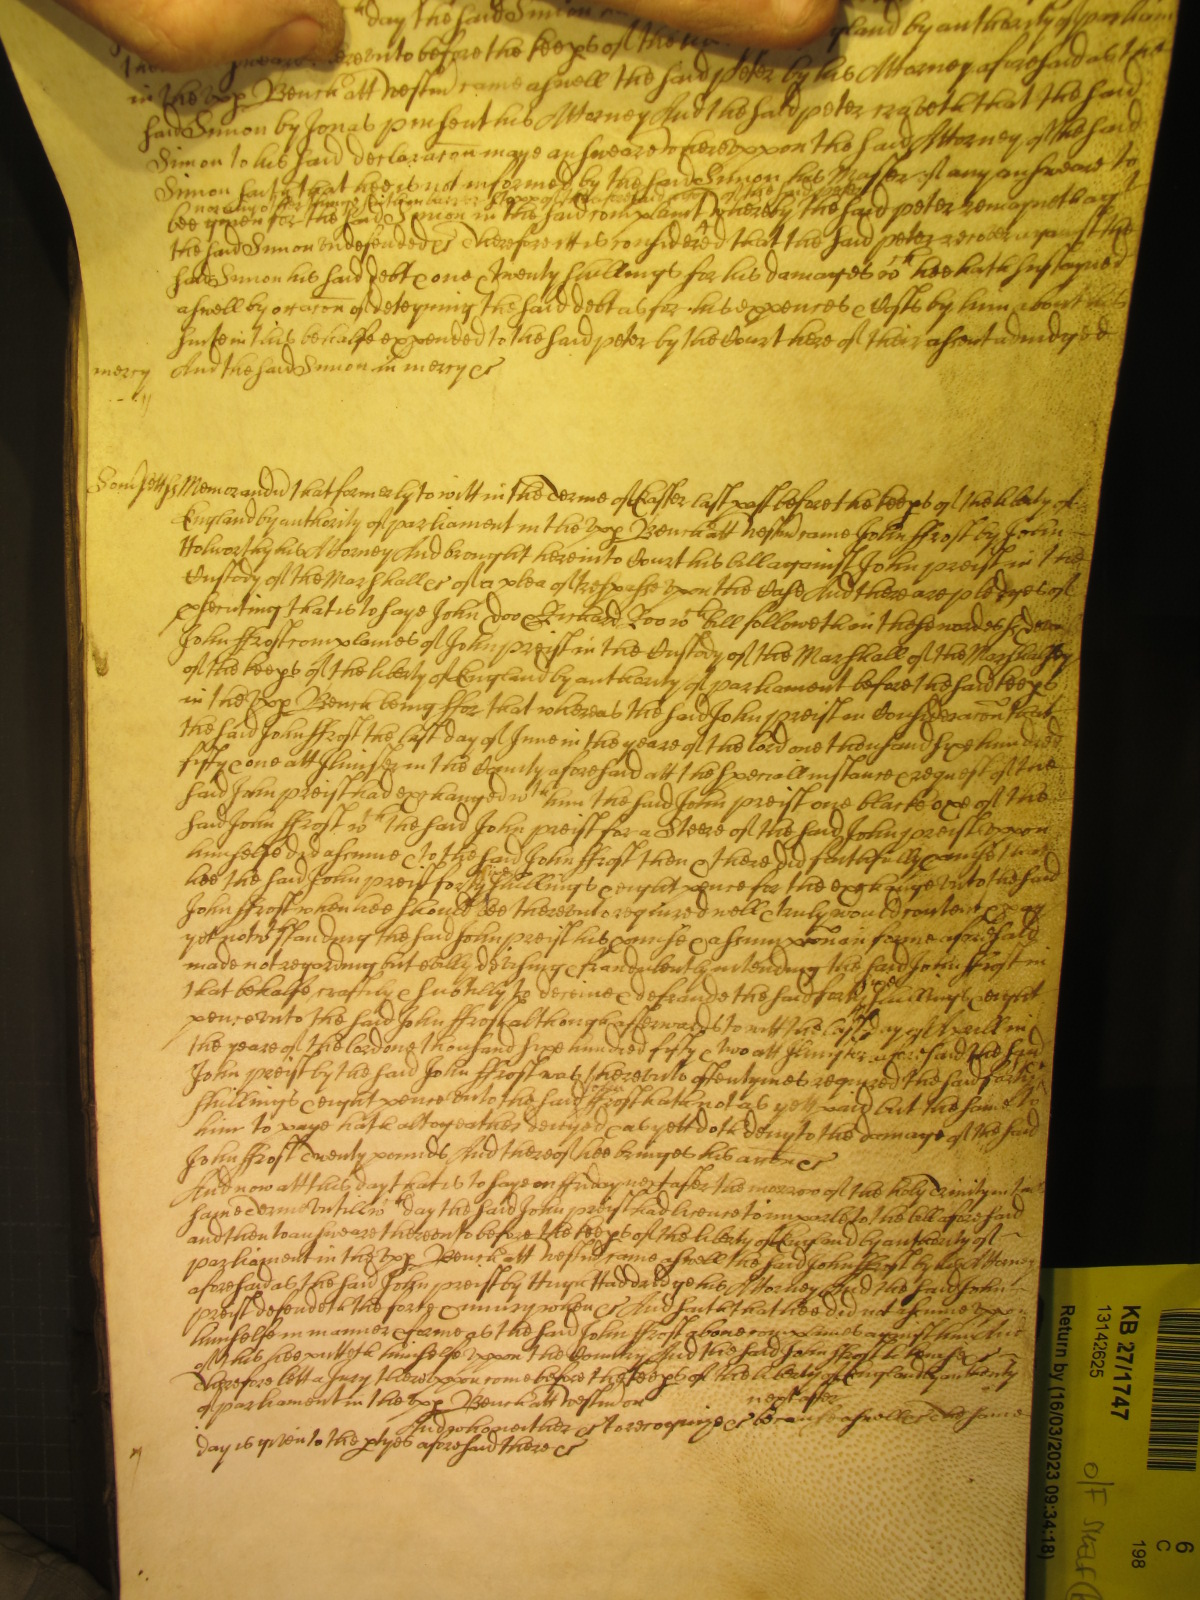 day the said Simon
thereunto before the keeps of the gland by authority of parliam
in the upp Bench att Westm came aswell the said peter by his Attorney aforesaid as the
said Simon by Jonas present his Attorney And the said peter craveth that the said
Simon to his said declaracon maye answeare whereuppon the said Attorney of the said
Simon saith that hee is not informed by the said Simon his Master of any answeare to
bee given for the said Simon in the said complaint whereby the said peter remayneth agt
the said Simon undefended &c Therefore itt is considered that the said peter recover against the
said Simon his said debt & one & twenty shillings for his damages wch hee hath susteyned
aswell by occacon of deteyning the said debt as for his expences & Costs by him about his
suite in this behalfe expended to the said peter by the Court here of their assent adiudged
mercy And the said Simon in mercy &c
Somsett ss Memorandu that formerly to witt in the Terme of Easter last past before the keeps of the liberty of
England by authority of parliament in the upp Bench att Westm came John ffrost by John
Holworthy his Attorney And brought here into Court his bill against John preist in the
Custody of the Marshall &c of a plea of trespasse upon the Case And there are pledges of
psecuting that is to saye John Doo & Richard Roo wch bill followeth in these wordes ss
John ffrost complaines of John preist in the Custody of the Marshall of the Marshallsey
of the keeps of the liberty of England by authority of parliament before the said keeps
in the upp Bench being ffor that whereas the said John preist in Consideracon that
the said John ffrost the last day of June in the yeare of the lord one thousand sixe hundred
fifty one att Ilmister in the County aforesaid att the speciall instance & request of the
said John preist had exchanged wth him the said John preist one blacke oxe of the
said John ffrost wth the said John preist for a Steere of the said John preist uppon
himselfe did assume & to the said John ffrost then & there did faithfully pmise that
hee the said John preist forty shillings & eight pence for the exchange unto the said
John ffrost when hee should bee thereunto required well & truly would content & pay
yet notwthstanding the said John preist his pmise & assumpcon in forme aforesaid
made not regarding but evilly devising & fraudulently intending the said John ffrost in
that behalfe craftily & subtilly to deceive & defraude the said forty shillings & eight
pence unto the said John ffrost although afterwards to witt the last day of Aprill in
the yeare of the lord one thousand sixe hundred fifty & two att Ilmister aforesaid the said
John preist by the said John ffrost was thereunto oftentymes required the said forty
shillings & eight pence unto the said John ffrost hath not as yett paid but the same to
him to paye hath altogeather denyed & as yett doth deny to the damage of the said
John ffrost twenty pounds And thereof hee bringes his accon &c
And now att this day that is to saye on ffriday next after the morrow of the holy Trinity in this
same Terme untill wch day the said John preist had licence to imparle to the bill aforesaid
and then to answeare thereunto before the keeps of the liberty of England by authority of
parliament in the upp Bench att Westm came aswell the said John ffrost by his Attorney
aforesaid as the said John preist by his Attorney And the said John
preist defendeth the force & iniury when &c And saith that hee did not assume uppon
himselfe in manner & forme as the said John ffrost above complaines against him And
of this hee putteth himselfe uppon the Country And the said John ffrost likewise &c
Therefore lett a Jury thereuppon come before the keeps of the liberty of England by authority
of parliament in the upp Bench att Westm on next after
And who neither &c to recognize &c because aswell &c The same
day is given to the ptyes aforesaid there &c
KB 27/1747
13142625
Return by (16/03/2023 09:34:18)
198
6
C